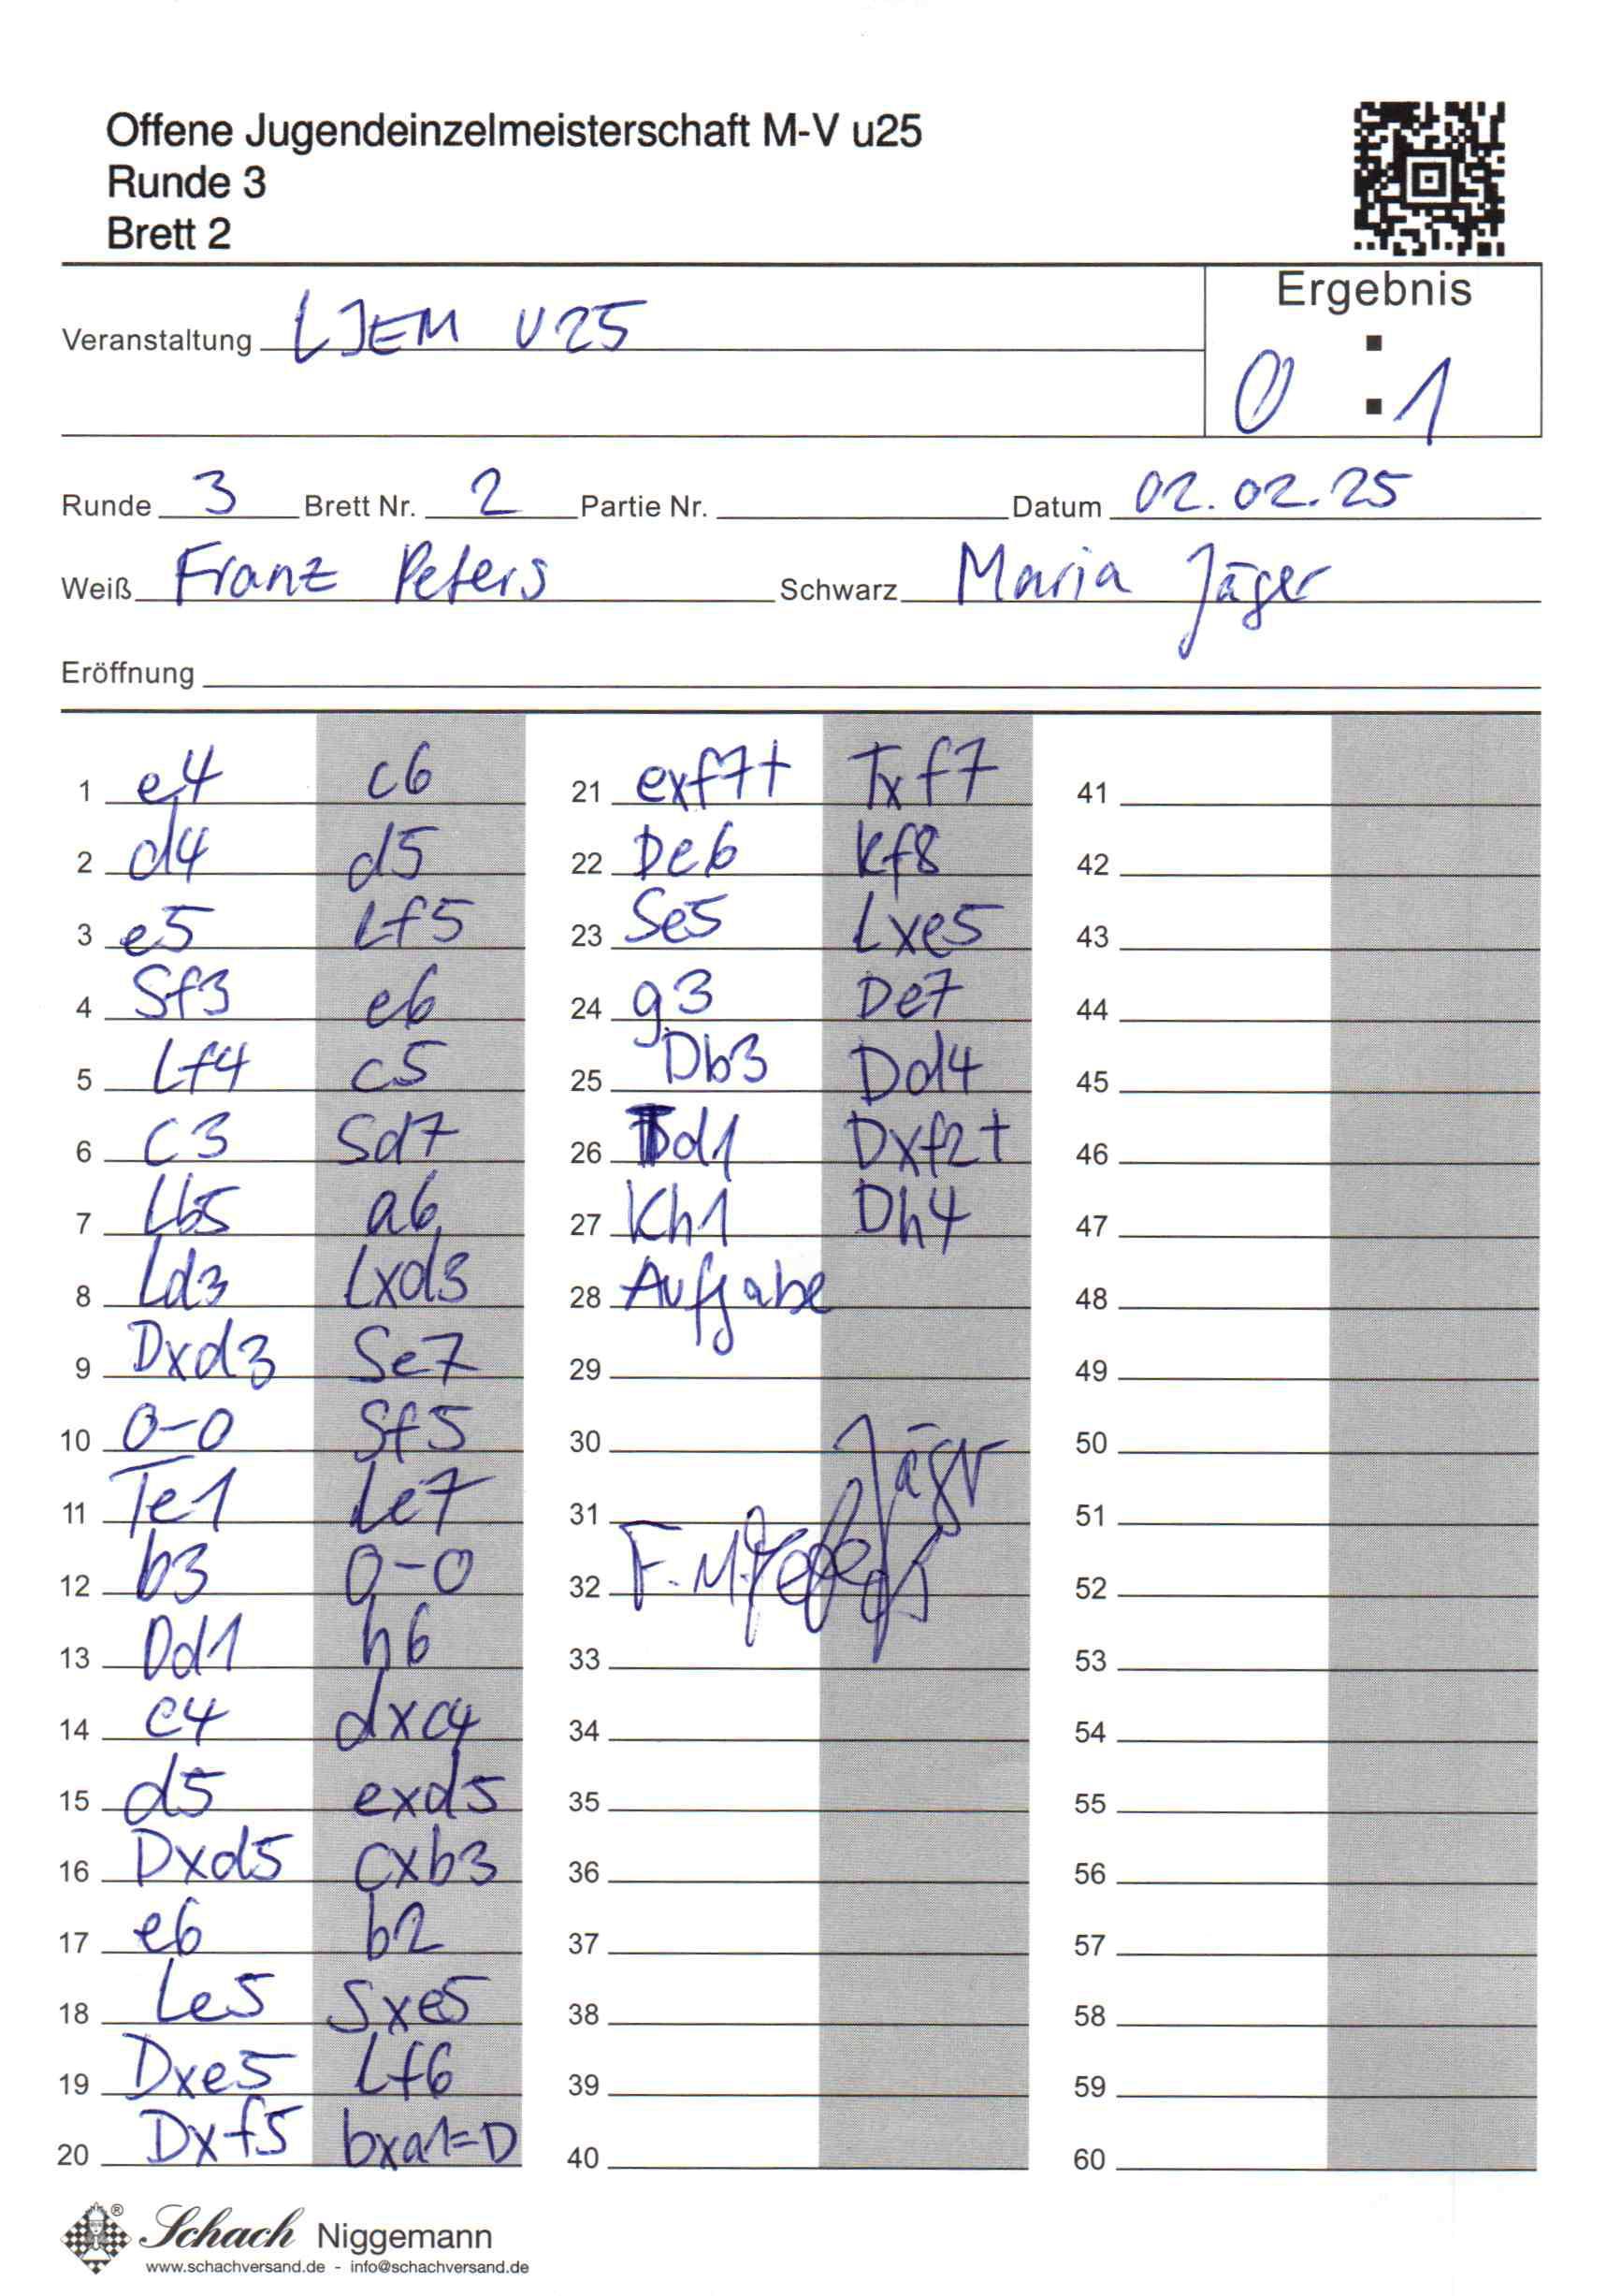 Offene Jugendeinzelmeisterschaft M-V u25
Runde 3
Brett 2
Ergebnis
Veranstaltung LJEM U25
0 : 1
Runde 3 Brett Nr. 2 Partie Nr. Datum 02.02.25
Weiß Franz Peters Schwarz Maria Jäger
Eröffnung
1 e4 c6
2 d4 d5
3 e5 Lf5
4 Sf3 e6
5 Lf4 c5
6 c3 Sd7
7 Lb5 a6
8 Ld3 Lxd3
9 Dxd3 Se7
10 0-0 Sf5
11 Te1 Le7
12 b3 0-0
13 Dd1 h6
14 c4 dxc4
15 d5 exd5
16 Dxd5 cxb3
17 e6 b2
18 Le5 Sxe5
19 Dxe5 Lf6
20 Dxf5 bxa1=D
21 exf7+ Txf7
22 De6 Kf8
23 Se5 Lxe5
24 g3 De7
25 Db3 Dd4
26 Td1 Dxf2+
27 Kh1 Dh4
28 Aufgabe
29
30
31 Jäger
32
33
34
35
36
37
38
39
40
41
42
43
44
45
46
47
48
49
50
51
52
53
54
55
56
57
58
59
60
Schach Niggemann
www.schachversand.de - info@schachversand.de